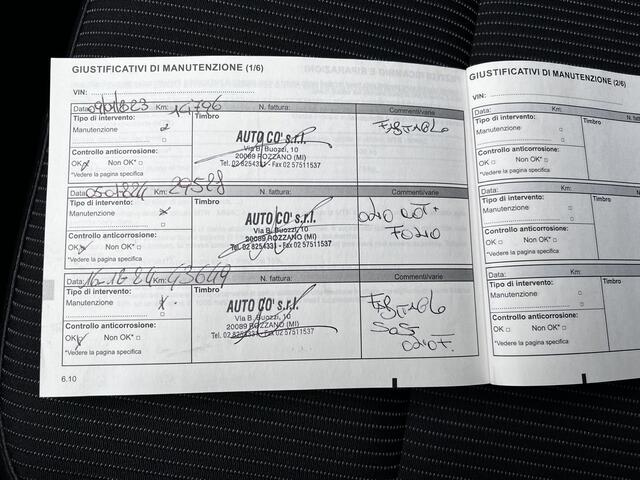 GIUSTIFICATIVI DI MANUTENZIONE (1/6)
VIN:
Data: Km: 14796 N. fattura: Commenti/varie
Tipo di intervento: Timbro
Manutenzione
AUTO CO' s.r.l.
Via B. Buozzi, 10
20089 ROZZANO (MI)
Tel. 02 8254331 - Fax 02 57511537
Controllo anticorrosione:
OK Non OK*
*Vedere la pagina specifica
Data: Km: 29528 N. fattura: Commenti/varie
Tipo di intervento: Timbro
Manutenzione
AUTO CO' s.r.l.
Via B. Buozzi, 10
20089 ROZZANO (MI)
Tel. 02 8254331 - Fax 02 57511537
Controllo anticorrosione:
OK Non OK*
*Vedere la pagina specifica
Data: Km: 43649 N. fattura: Commenti/varie
Tipo di intervento: Timbro
Manutenzione
AUTO CO' s.r.l.
Via B. Buozzi, 10
20089 ROZZANO (MI)
Tel. 02 8254331 - Fax 02 57511537
Controllo anticorrosione:
OK Non OK*
*Vedere la pagina specifica
6.10
GIUSTIFICATIVI DI MANUTENZIONE (2/6)
VIN:
Data: Km: N. fatt
Tipo di intervento: Timbro
Manutenzione
Controllo anticorrosione:
OK Non OK*
*Vedere la pagina specifica
Data: Km:
Tipo di intervento: Timbro
Manutenzione
Controllo anticorrosione:
OK Non OK*
*Vedere la pagina specifica
Data: Km:
Tipo di intervento: Timbro
Manutenzione
Controllo anticorrosione:
OK Non OK*
*Vedere la pagina specifica